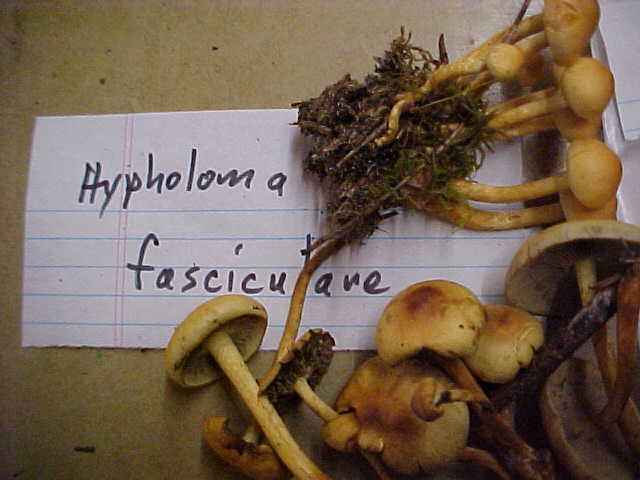 Hypholoma
fasciculare